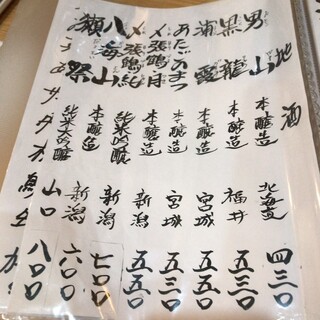 地酒
男山 本醸造 北海道 四三〇
黒龍 本醸造 福井 五三〇
浦霞 本醸造 宮城 五五〇
あたごのまつ 本醸造 宮城 五三〇
〆張鶴 月 本醸造 新潟 五五〇
〆張鶴 純 純米吟醸 新潟 七〇〇
八海山 純米吟醸 新潟 六〇〇
獺祭 純米大吟醸 山口 八〇〇